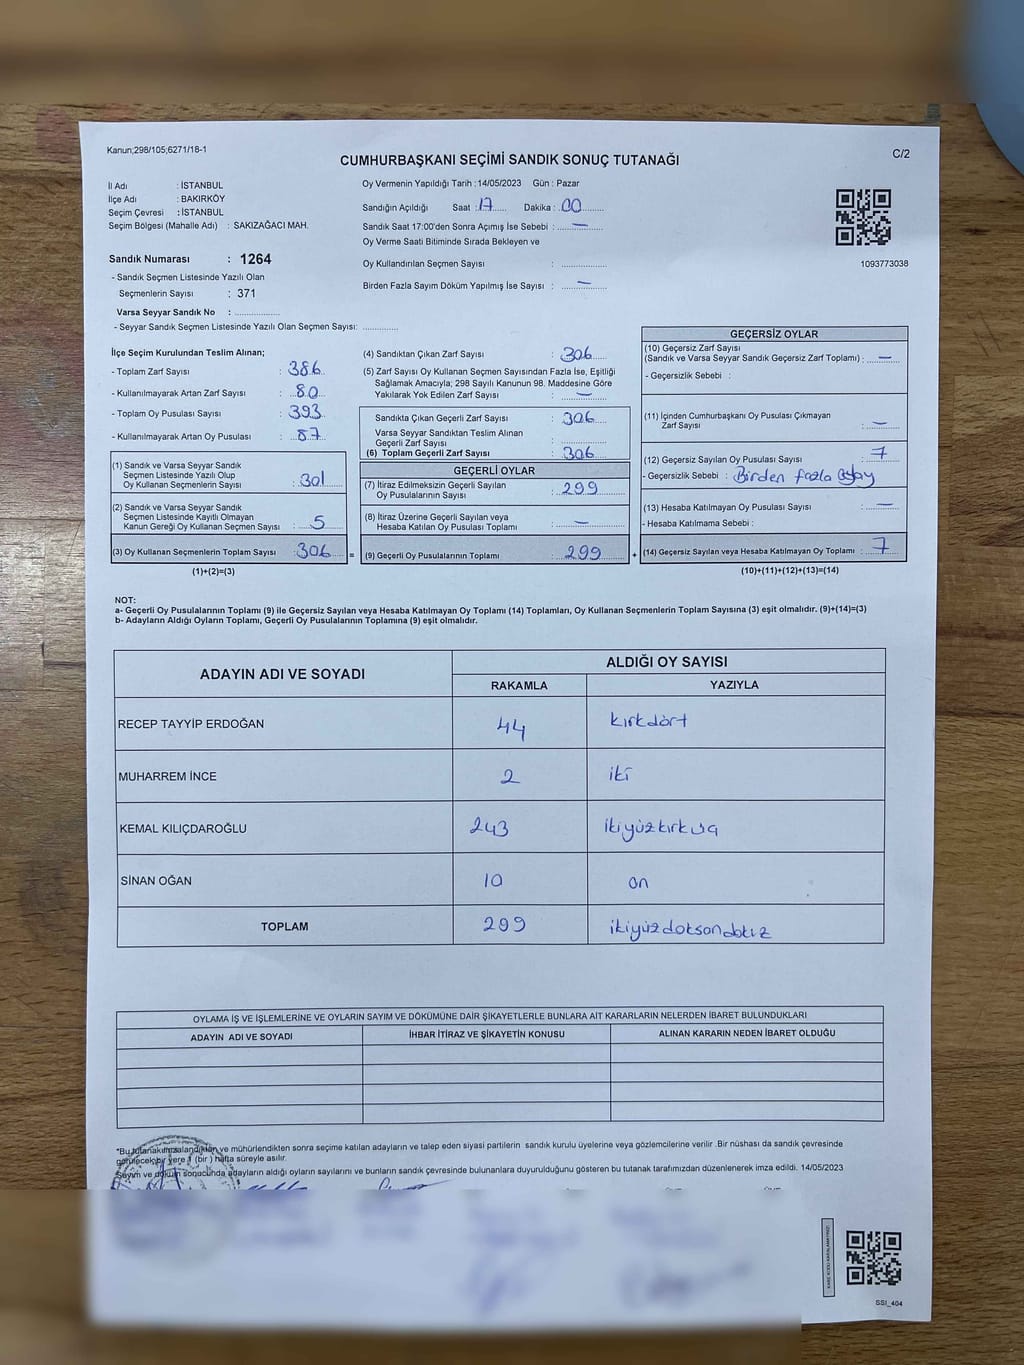 Kanun;298/105;6271/18-1
CUMHURBAŞKANI SEÇİMİ SANDIK SONUÇ TUTANAĞI
C/2
İl Adı : İSTANBUL
İlçe Adı : BAKIRKÖY
Seçim Çevresi : İSTANBUL
Seçim Bölgesi (Mahalle Adı) : SAKIZAĞACI MAH.
Sandık Numarası : 1264
- Sandık Seçmen Listesinde Yazılı Olan
Seçmenlerin Sayısı : 371
Varsa Seyyar Sandık No : ..............
- Seyyar Sandık Seçmen Listesinde Yazılı Olan Seçmen Sayısı: ............
Oy Vermenin Yapıldığı Tarih : 14/05/2023 Gün : Pazar
Sandığın Açıldığı Saat : 17 Dakika : 00
Sandık Saat 17:00'den Sonra Açımış İse Sebebi : —
Oy Verme Saati Bitiminde Sırada Bekleyen ve
Oy Kullandırılan Seçmen Sayısı : ..............
Birden Fazla Sayım Döküm Yapılmış İse Sayısı : —
1093773038
İlçe Seçim Kurulundan Teslim Alınan;
- Toplam Zarf Sayısı : 386
- Kullanılmayarak Artan Zarf Sayısı : 80
- Toplam Oy Pusulası Sayısı : 393
- Kullanılmayarak Artan Oy Pusulası : 87
(1) Sandık ve Varsa Seyyar Sandık
Seçmen Listesinde Yazılı Olup
Oy Kullanan Seçmenlerin Sayısı : 301
(2) Sandık ve Varsa Seyyar Sandık
Seçmen Listesinde Kayıtlı Olmayan
Kanun Gereği Oy Kullanan Seçmen Sayısı : 5
(3) Oy Kullanan Seçmenlerin Toplam Sayısı : 306 =
(1)+(2)=(3)
(4) Sandıktan Çıkan Zarf Sayısı : 306
(5) Zarf Sayısı Oy Kullanan Seçmen Sayısından Fazla İse, Eşitliği
Sağlamak Amacıyla; 298 Sayılı Kanunun 98. Maddesine Göre
Yakılarak Yok Edilen Zarf Sayısı : —
Sandıkta Çıkan Geçerli Zarf Sayısı : 306
Varsa Seyyar Sandıktan Teslim Alınan
Geçerli Zarf Sayısı : ..............
(6) Toplam Geçerli Zarf Sayısı : 306
GEÇERLİ OYLAR
(7) İtiraz Edilmeksizin Geçerli Sayılan
Oy Pusulalarının Sayısı : 299
(8) İtiraz Üzerine Geçerli Sayılan veya
Hesaba Katılan Oy Pusulası Toplamı : —
(9) Geçerli Oy Pusulalarının Toplamı : 299 +
GEÇERSİZ OYLAR
(10) Geçersiz Zarf Sayısı
(Sandık ve Varsa Seyyar Sandık Geçersiz Zarf Toplamı) : —
- Geçersizlik Sebebi :
(11) İçinden Cumhurbaşkanı Oy Pusulası Çıkmayan
Zarf Sayısı : —
(12) Geçersiz Sayılan Oy Pusulası Sayısı : 7
- Geçersizlik Sebebi : Birden fazla
(13) Hesaba Katılmayan Oy Pusulası Sayısı : —
- Hesaba Katılmama Sebebi :
(14) Geçersiz Sayılan veya Hesaba Katılmayan Oy Toplamı : 7
(10)+(11)+(12)+(13)=(14)
NOT:
a- Geçerli Oy Pusulalarının Toplamı (9) ile Geçersiz Sayılan veya Hesaba Katılmayan Oy Toplamı (14) Toplamları, Oy Kullanan Seçmenlerin Toplam Sayısına (3) eşit olmalıdır. (9)+(14)=(3)
b- Adayların Aldığı Oyların Toplamı, Geçerli Oy Pusulalarının Toplamına (9) eşit olmalıdır.
ADAYIN ADI VE SOYADI ALDIĞI OY SAYISI
RAKAMLA YAZIYLA
RECEP TAYYİP ERDOĞAN 44 kırkdört
MUHARREM İNCE 2 iki
KEMAL KILIÇDAROĞLU 243 ikiyüzkırküç
SİNAN OĞAN 10 on
TOPLAM 299 ikiyüzdoksandokuz
OYLAMA İŞ VE İŞLEMLERİNE VE OYLARIN SAYIM VE DÖKÜMÜNE DAİR ŞİKAYETLERLE BUNLARA AİT KARARLARIN NELERDEN İBARET BULUNDUKLARI
ADAYIN ADI VE SOYADI İHBAR İTİRAZ VE ŞİKAYETİN KONUSU ALINAN KARARIN NEDEN İBARET OLDUĞU
*Bu tutanak imzalandıktan ve mühürlendikten sonra seçime katılan adayların ve talep eden siyasi partilerin sandık kurulu üyelerine veya gözlemcilerine verilir .Bir nüshası da sandık çevresinde
görülecek bir yere 1 (bir ) hafta süreyle asılır.
Sayım ve döküm sonucunda adayların aldığı oyların sayılarını ve bunların sandık çevresinde bulunanlara duyurulduğunu gösteren bu tutanak tarafımızdan düzenlenerek imza edildi. 14/05/2023
SSI_404